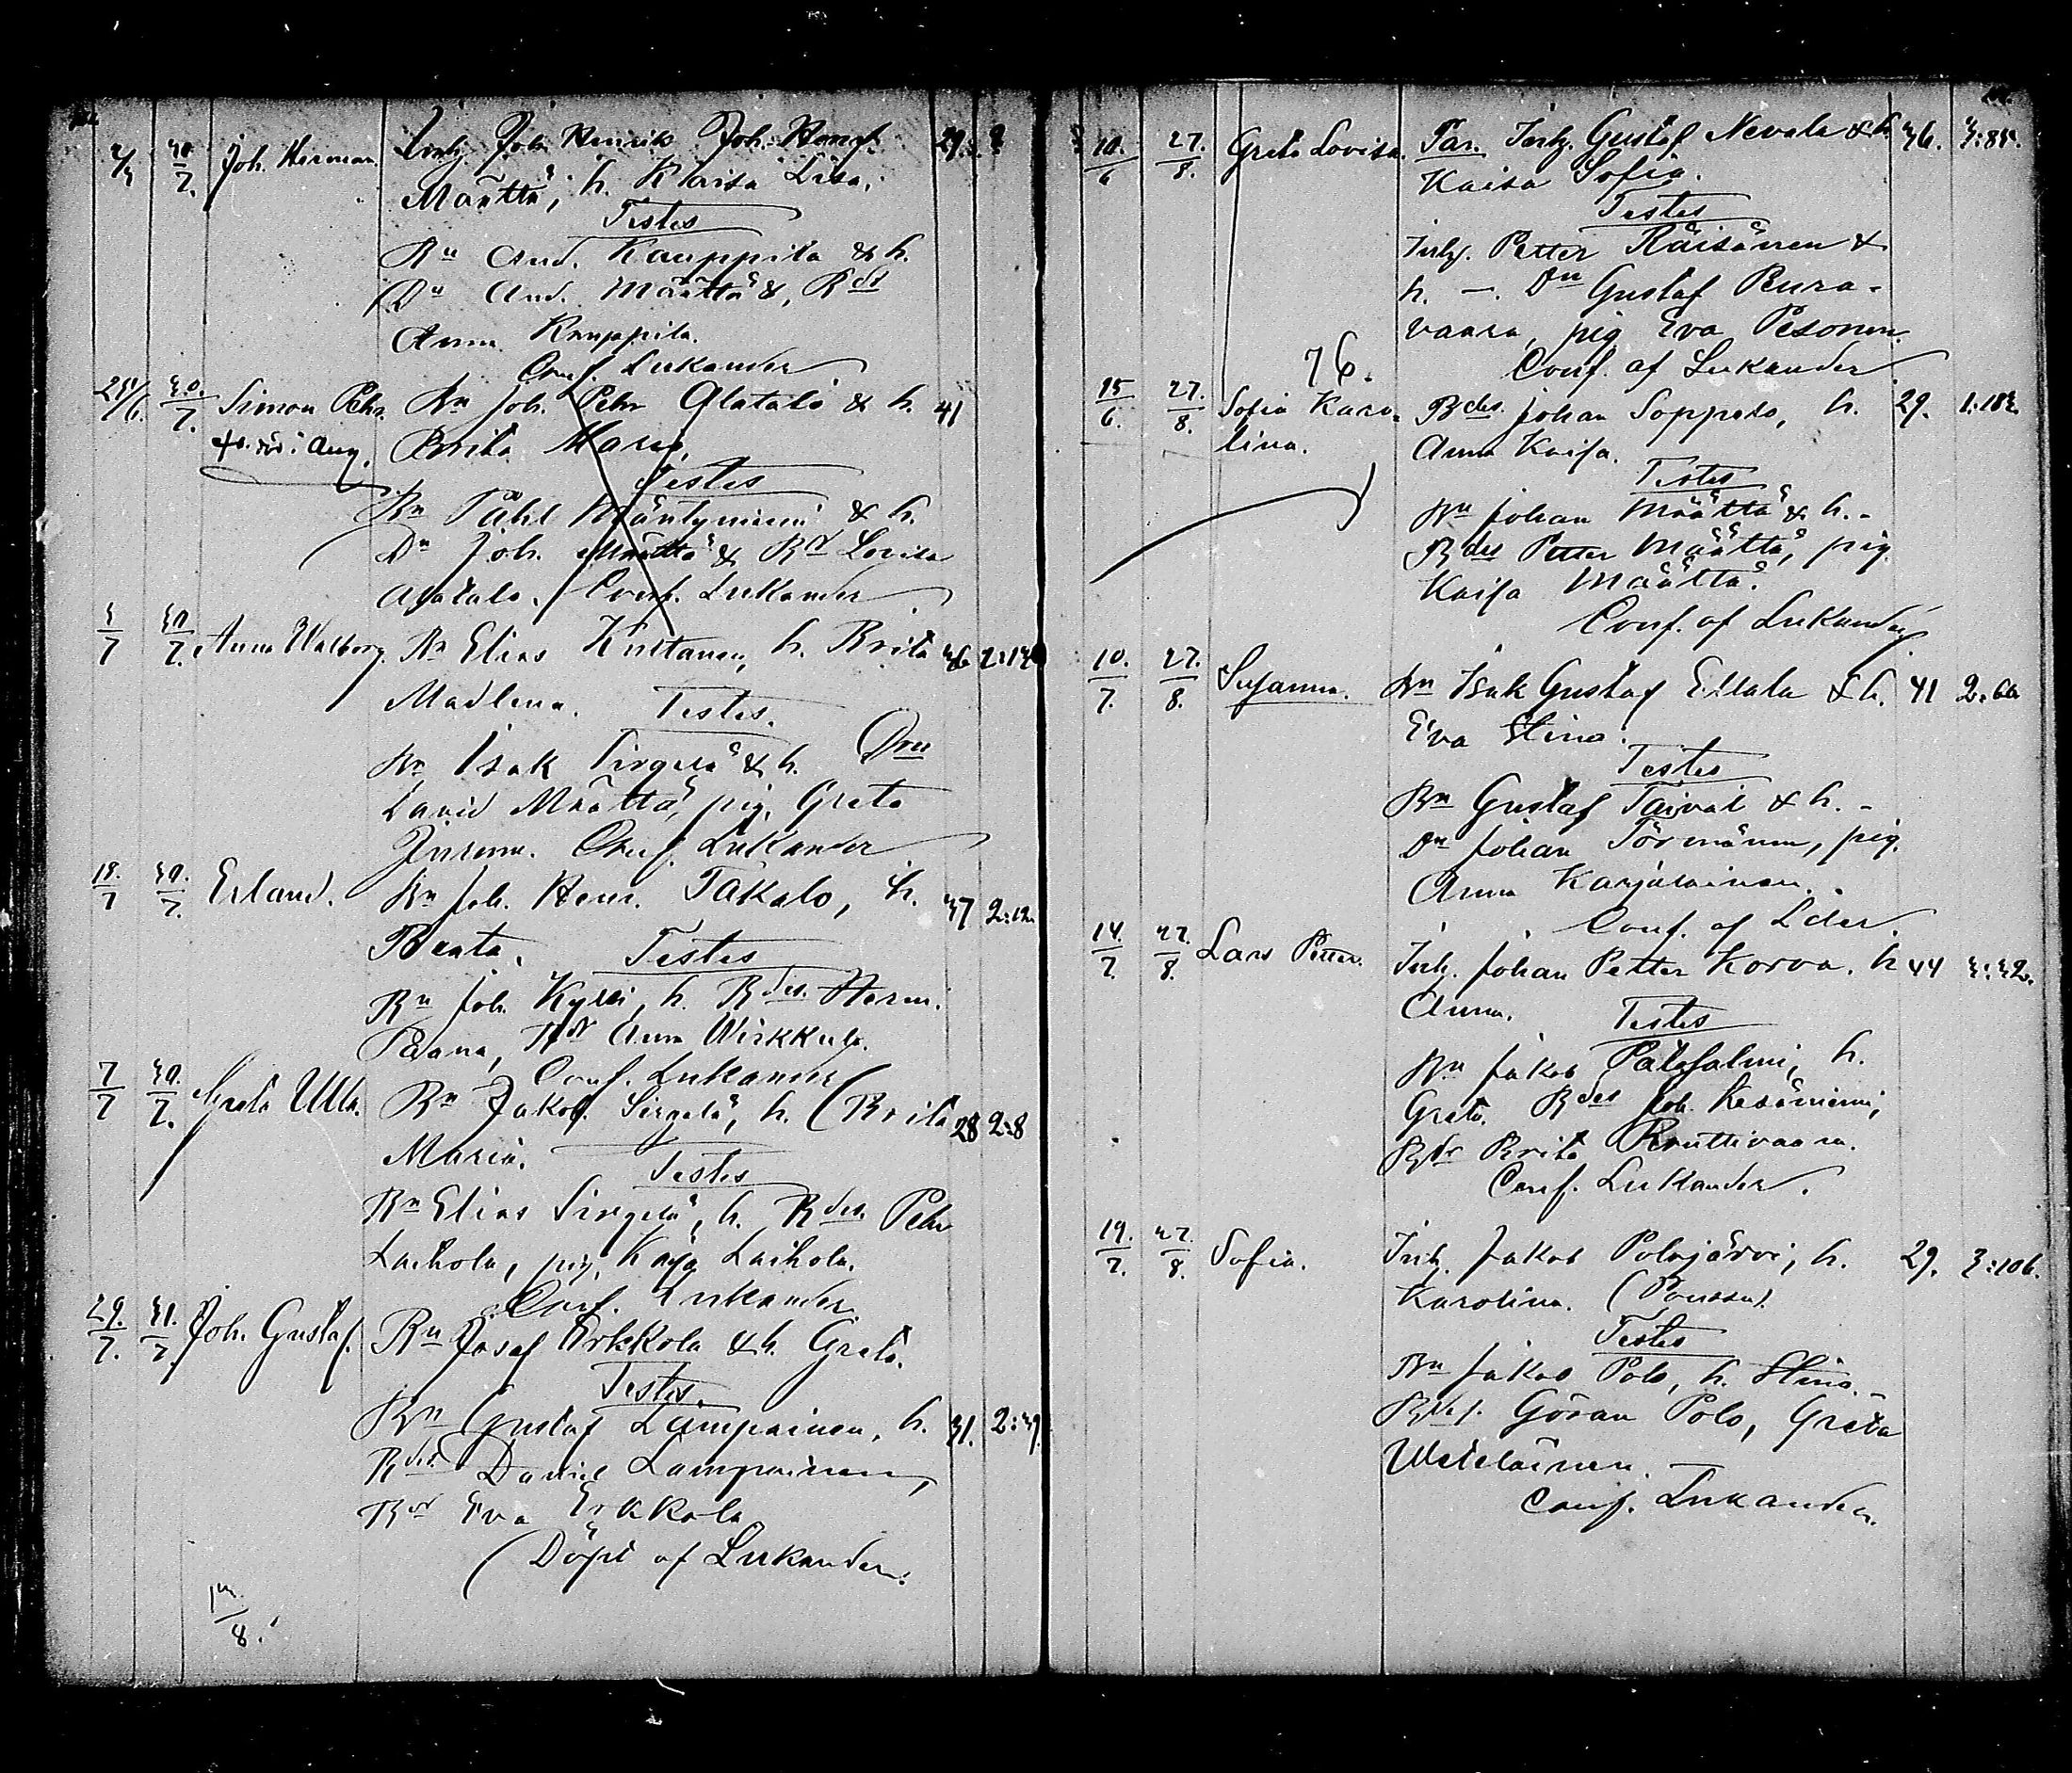 2/7 30/7. Joh. Herman. Inhy Joh. Henrik Joh. Henrs. 29. 2
Määttä, h. Kaisa Lisa.
Testes
Bn And. Kauppila & h.
Dn And. Määttä &, Bdr
Anna Kauppila.
Conf. Lukander
30/7. Simon Pehr. Bn Joh. Pehr Alatalo & h. 41
Aug. Brita Maria,
Testes
Bn Påhl Mäntyniemi & h.
Dn Joh. Määttä & Bdr Lovisa
Alatalo. Conf. Lukander
3/7 30/7. Anna Walborg. Bn Elias Kurtanen, h. Brita 36
Madlena. Testes.
Bn Isak Sirgelä & h. Drn
David Määttä, pig. Greta
Conf. Lukander
18./7 30./7. Erland. Bn Joh. Henr. Takalo, h. 37 2:12.
Beata. Testes
Bn Joh. Kylli, h. Bdes. Herm.
Paana, Bdr Anna Wirkkula.
Conf. Lukander
7/7 30./7. Greta Ulla. Bn Jakob. Sirgelä, h. (Brita 28 2:8
Maria. Testes
Bn Elias Sirgelä, h. Bdes. Pehr
Laihola, pig. Kaja Laihola.
Conf. Lukander
29./7. 31./7. Joh. Gustaf. Bn Josef Erkkola & h. Greta.
Testes.
Bn Gustaf Lampainen, h. 31. 2:39.
Bdes. Daniel Lampainen,
Bdr Eva Erkkola
(Döpt af Lukander.
/8.
10./6 27./8. Greta Lovisa. Par. Inhy. Gustaf Nevala & h. 36. 3:85.
Kaisa Sofia.
Testes
Inhy. Petter Räisänen &
h. —. Dn Gustaf Pura-
vaara, pig Eva Pesonen.
76. Conf. af Lukander
15/6. 27./8. Sofia Karo- Bdes. Johan Soppela, h. 29. 1.183.
lina. Anna Kaisa.
Testes
Bn Johan Määttä & h. -
Bdes Petter Määttä, pig.
Kaisa Määttä.
Conf. af Lukander
10./7. 27./8. Susanna. Bn Isak Gustaf Ellala & h. 41 2.60
Eva Stina.
Testes
Bn Gustaf Taival & h. -
Dn Johan Törmänen, pig.
Anna Karjalainen.
Conf. af Lder.
14./7. 27./8. Lars Petter. Inhy. Johan Petter Korva. h 44 3:32.
Anna. Testes
Bn Jakob Palosalmi, h.
Greta. Bdes Joh. Kesäniemi,
Bdr Brita Ruuttivaara.
Conf. Lukander.
19./7. 27./8. Sofia. Inhy. Jakob Polojärvi, h. 29. 3:106.
Karolina. (Poussu).
Testes
Bn Jakob Polo, h. Stina.
Bdes. Göran Polo, Greta
Uleläinen.
Conf. Lukander.